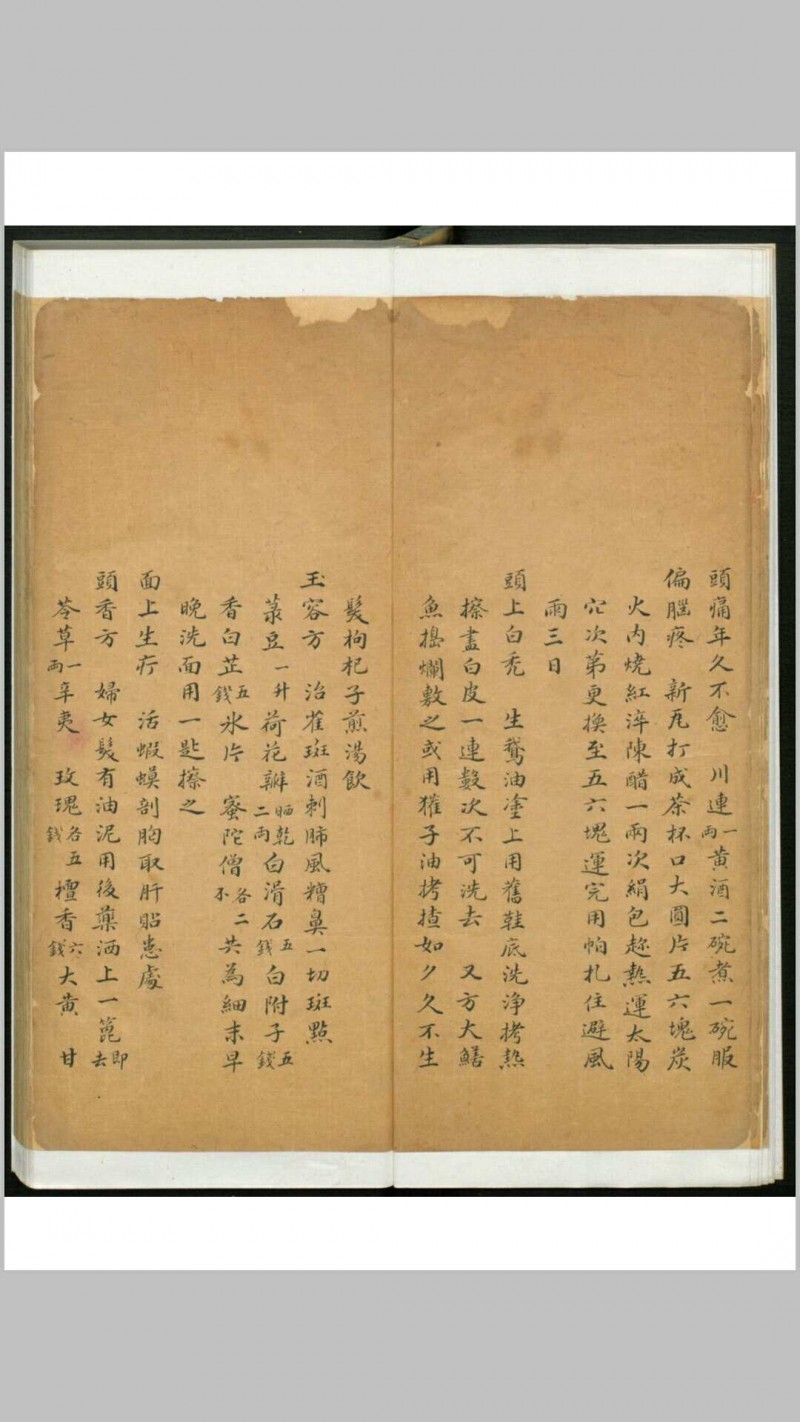 頭痛年久不愈　川連一兩黃酒二碗煮一碗服
偏腦疼　新瓦打成茶杯口大圓片五六塊炭
火內燒紅淬陳醋一兩次絹包趂熱運太陽
穴次第更換至五六塊運完用帕扎住避風
兩三日
頭上白禿　生鵞油塗上用舊鞋底洗淨拷熱
擦盡白皮一連數次不可洗去　又方大鱔
魚搗爛敷之或用獾子油拷揸如夕久不生
髮枸杞子煎湯飲
玉容方　治雀斑酒刺肺風糟鼻一切斑點
菉豆一升荷花瓣晒乾二兩白滑石五錢白附子五錢
香白芷五錢氷片　蜜陀僧各二不共為細末早
晚洗面用一匙擦之
面上生疔　活蝦蟆剖胸取肝貼患處
頭香方　婦女髮有油泥用後藥洒上一篦即去
苓草一兩辛夷　玫瑰各五錢檀香六錢大黃　甘